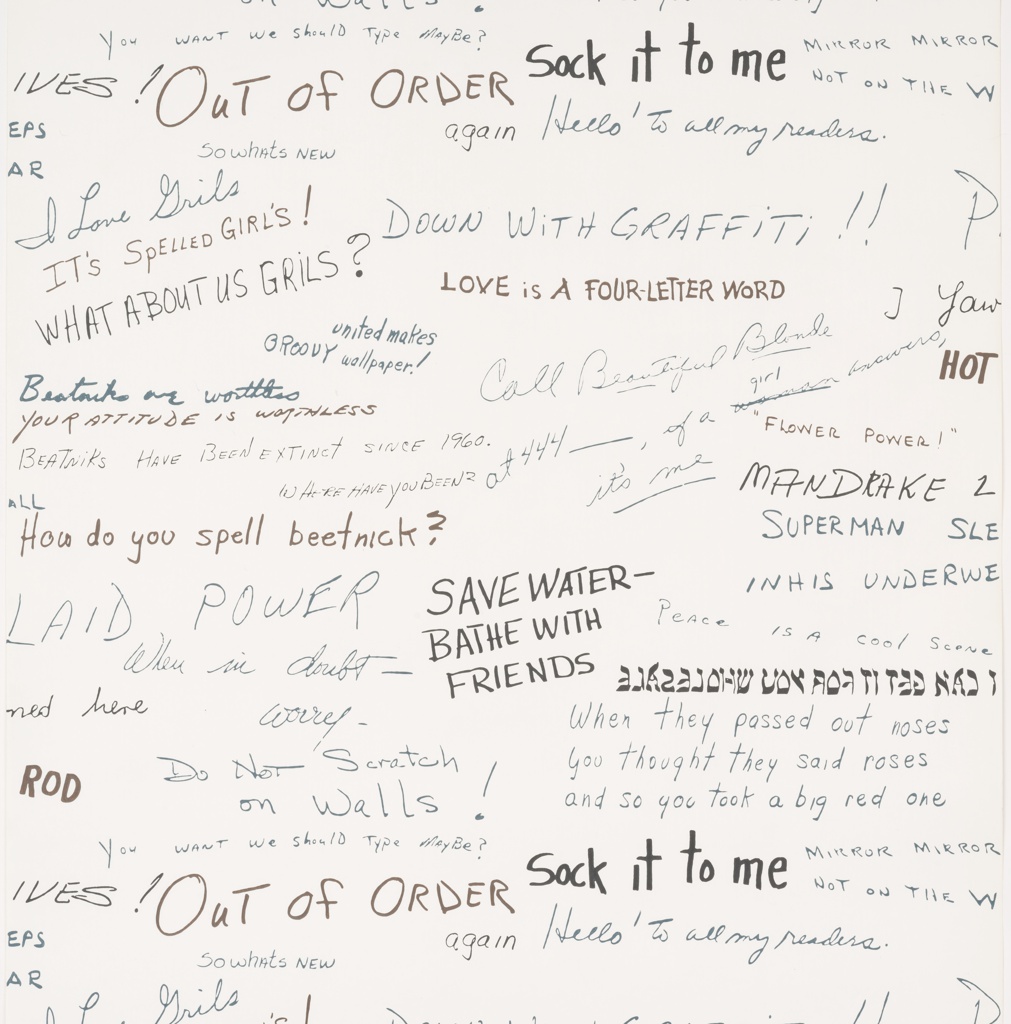 on Walls !
You WANT WE ShoulD Type MAyBe?
Sock it to me
MIRROR MIRROR
NOT ON THE W
IVES !
OuT OF ORDER
again
Hello' to all my readers.
EPS
So whats NEW
AR
I Love Grils
IT'S SpELLED GIRL'S !
WHAT ABOUT US GRILS ?
DOWN WiTH GRAFFiTi !!
P.
LOVE is A FOUR-LETTER WORD
J Yaw
united makes
GROOVY wallpaper!
Call Beautiful Blonde
at 444 — , of a woman girl answers,
it's me
HOT
Beatniks are worthless
YOUR ATTITUDE IS WORTHLESS
BEATNIKS HAVE BEEN EXTINCT SINCE 1960.
WHERE HAVE YOU BEEN?
"FLOWER POWER!"
MANDRAKE 2
ALL
SUPERMAN SLE
How do you spell beetnick?
IN HIS UNDERWE
LAID POWER
SAVE WATER—
BATHE WITH
FRIENDS
PEACE IS A COOL SCENE
When in doubt —
worry -
I CAN GET IT FOR YOU WHOLESALE
ned here
When they passed out noses
you thought they said roses
and so you took a big red one
ROD
Do Not Scratch
on Walls !
You WANT WE ShoulD Type MAyBe?
Sock it to me
MIRROR MIRROR
NOT ON THE W
IVES !
OuT OF ORDER
again
Hello' to all my readers.
EPS
So whats NEW
AR
I Love Grils